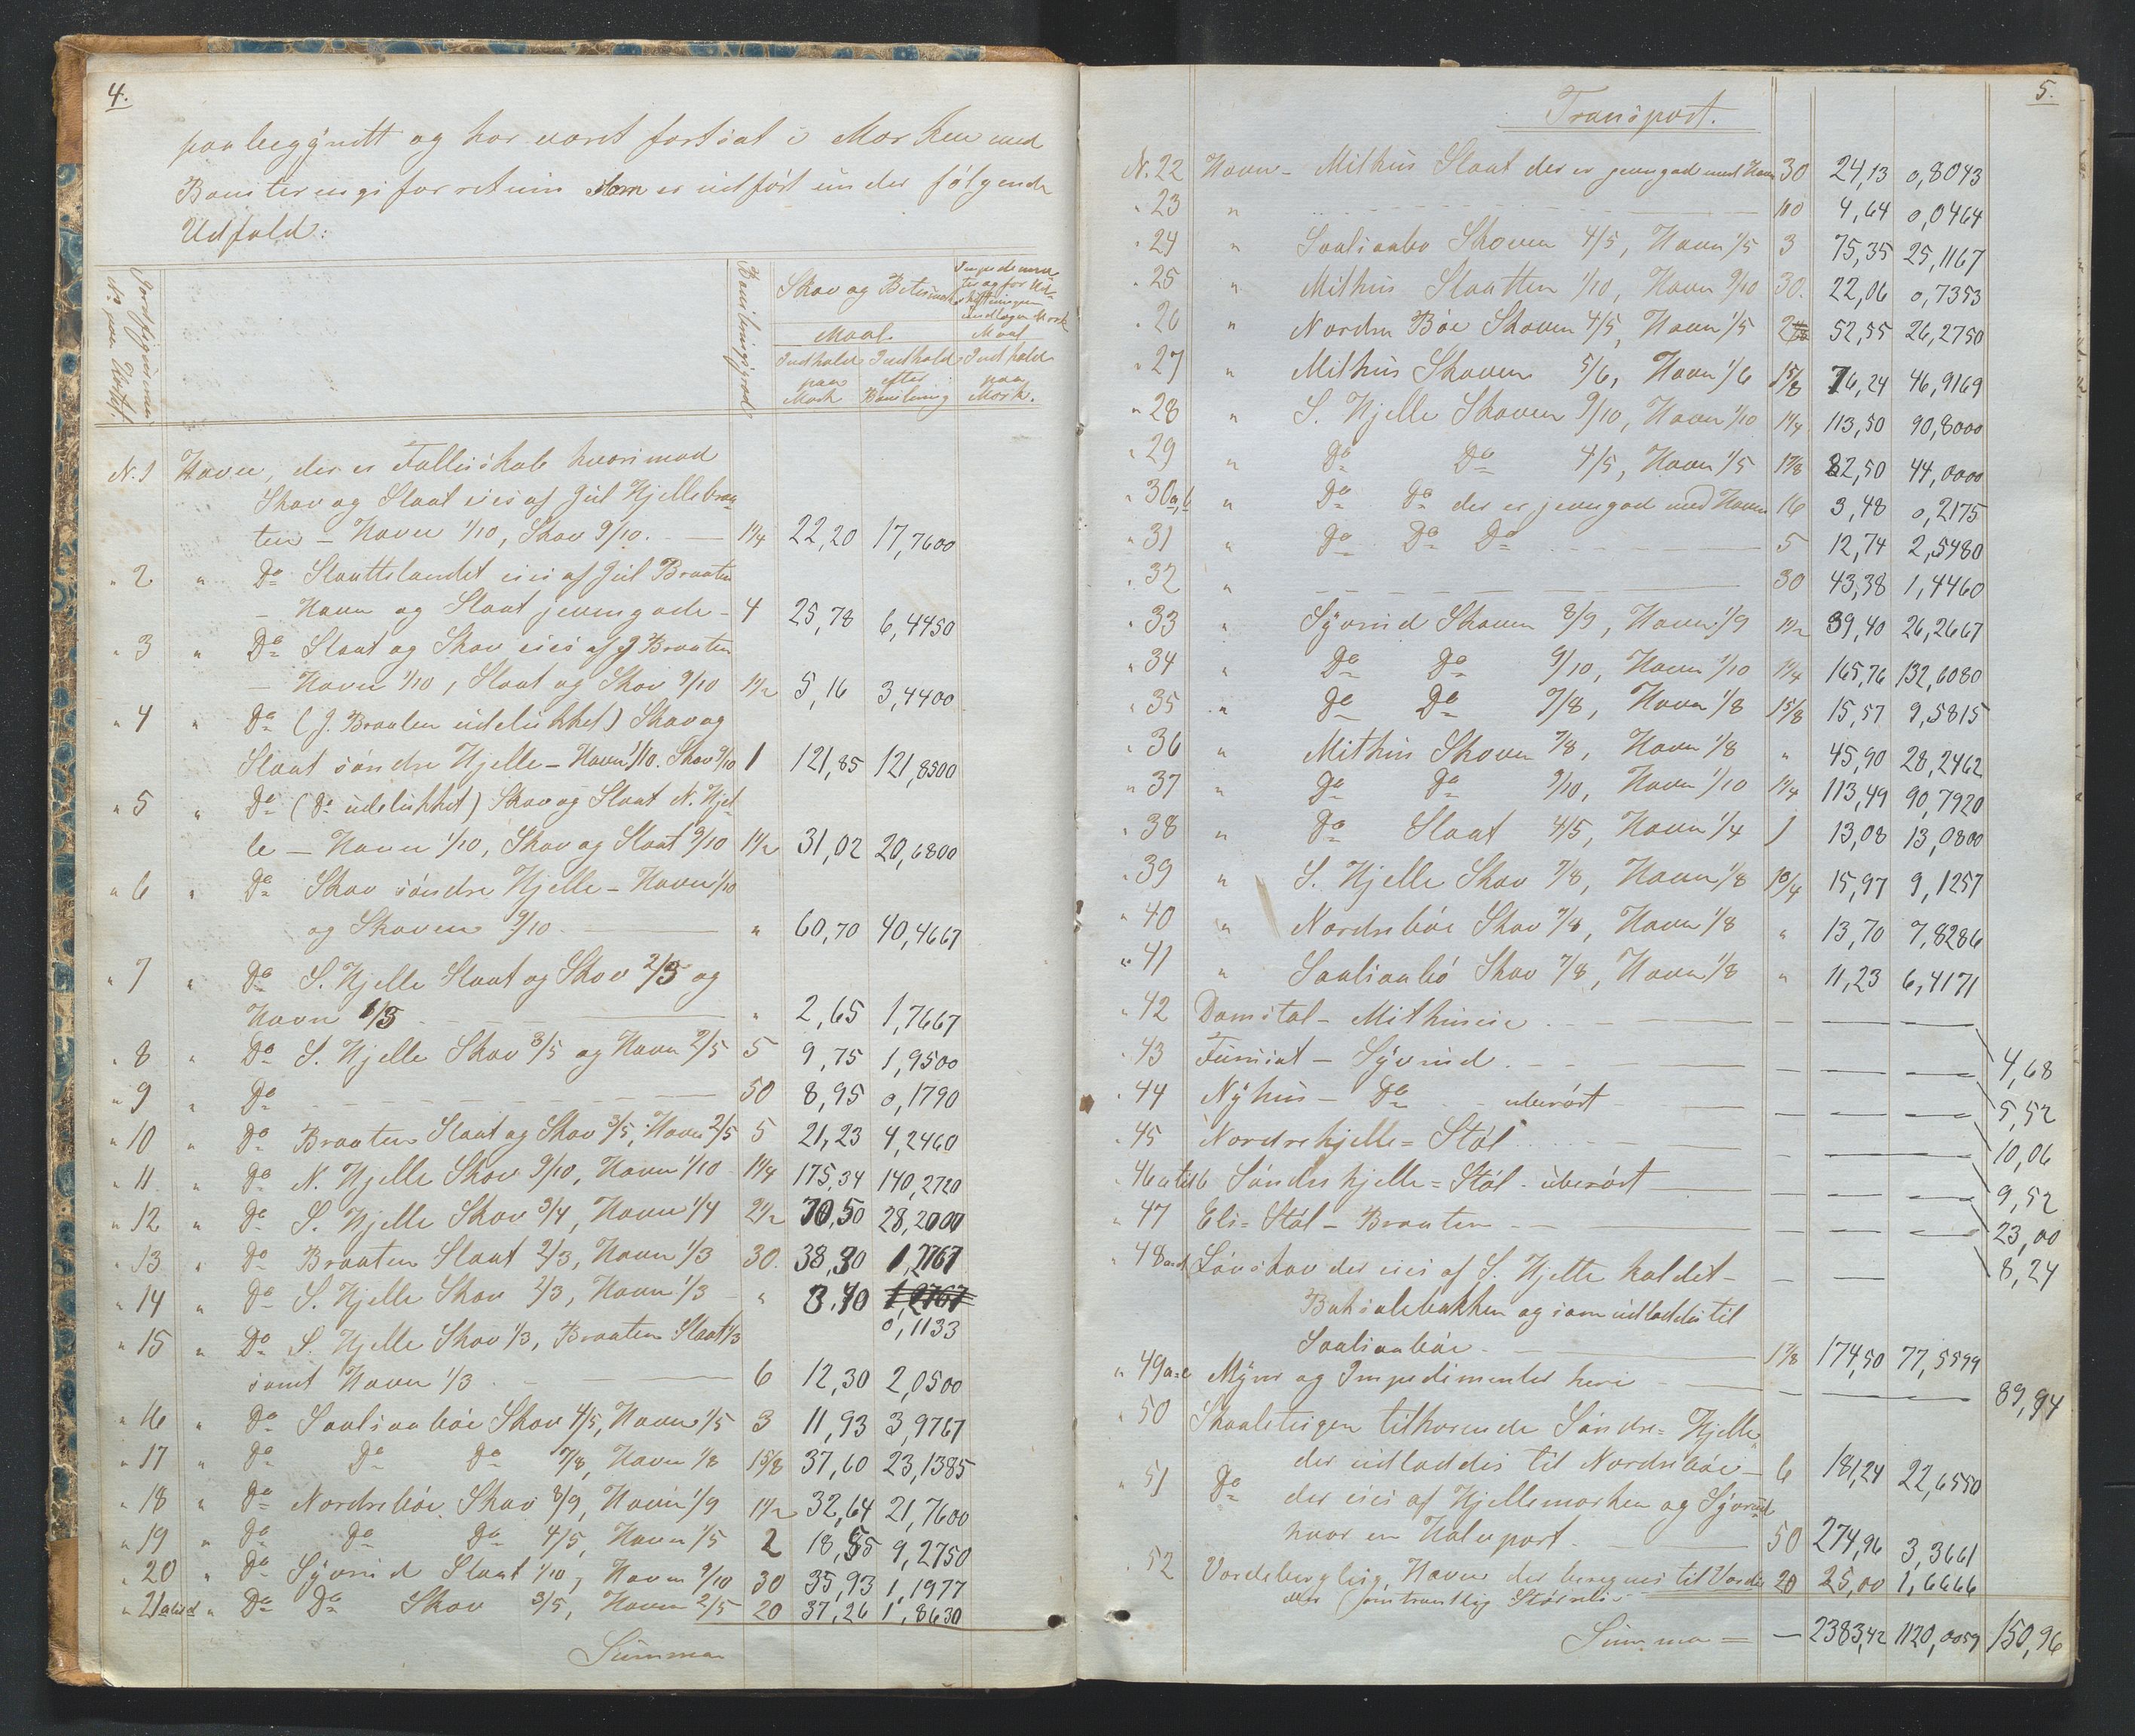 4.
paabegyndt og har været fortsat i Marken med
Boniteringsforretnin som er udført under følgende
Udfald:
Jordfigurernes No paa Kartet.
Boniteringsgrad
Skov og Beitesmark
Maal
Indhold paa Mark
Indhold efter Bonitering
Maal
Indhold paa Mark.
N. 1 Havn, der er Fællesskab hvorimod
Skov og Slaat eies af Jul Hjellebraa-
ten – Havn 1/10, Skov 9/10. 1 1/4 22,20 17,7600
" 2 " Do Slaattelandet eies af Jul Braaten
– Havn og Slaat jevngode – 4 25,78 6,4450
" 3 " Do Slaat og Skov eies af J Braaten
– Havn 1/10, Slaat og Skov 9/10 1 1/2 5,16 3,4400
" 4 " Do (J. Braaten udelukket) Skov og
Slaat søndre Hjelle – Havn 1/10. Skov 9/10 1 121,85 121,8500
" 5 " Do (Do udelukket) Skov og Slaat N. Hjel
le – Havn 1/10, Skov og Slaat 9/10 1 1/2 31,02 20,6800
" 6 " Do Skov søndre Hjelle – Havn 1/10
og Skoven 9/10 " 60,70 40,4667
" 7 " Do S. Hjelle Slaat og Skov 2/3 og
Havn 1/3 " 2,65 1,7667
" 8 " Do S. Hjelle Skov 3/5 og Havn 2/5 5 9,75 1,9500
" 9 " Do 50 8,95 0,1790
" 10 " Do Braaten Slaat og Skov 3/5, Havn 2/5 5 21,23 4,2460
" 11 " Do N. Hjelle Skov 9/10, Havn 1/10 1 1/4 175,34 140,2720
" 12 " Do S. Hjelle Skov 3/4, Havn 1/4 2 1/2 70,50 28,2000
" 13 " Do Braaten Slaat 2/3, Havn 1/3 30. 38,30 1,2767
" 14 " Do S. Hjelle Skov 2/3, Havn 1/3 " 3,40 1,2767
0,1133
" 15 " Do S. Hjelle Skov 1/3, Braaten Slaat 1/3
samt Havn 1/3 6 12,30 2,0500
" 16 " Do Saalisaabøe Skov 4/5, Havn 1/5 3 11,93 3,9767
" 17 " Do Do Do 7/8, Havn 1/8 1 5/8 37,60 23,1385
" 18 " Do Nordrebøe Skov 8/9, Havn 1/9 1 1/2 32,64 21,7600
" 19 " Do Do Do 4/5, Havn 1/5 2 18,55 9,2750
" 20 " Do Syvrud Slaat 1/10, Havn 9/10 30 35,93 1,1977
" 21 a til d " Do Do Skov 3/5, Havn 2/5 20 37,26 1,8630
Summa
5.
Transport.
N. 22 Havn – Mithus Slaat der er jevngod med Havn 30 24,13 0,8043
" 23 " 100 4,64 0,0464
" 24 " Saalisaabø Skoven 4/5, Havn 1/5 3 75,35 25,1167
" 25 " Mithus Slaatten 1/10, Havn 9/10 30. 22,06 0,7353
" 26 " Nordre Bøe Skoven 4/5, Havn 1/5 2 52,55 26,2750
" 27 " Mithus Skoven 5/6, Havn 1/6 1 5/8 76,24 46,9169
" 28 " S. Hjelle Skoven 9/10, Havn 1/10 1 1/4 113,50 90,8000
" 29 " Do Do 4/5, Havn 1/5 1 7/8 82,50 44,0000
" 30 a, b " Do Do der er jevngod med Havn 16 3,48 0,2175
" 31 " Do Do Do 5 12,74 2,5480
" 32 " 30 43,38 1,4460
" 33 " Syvrud Skoven 8/9, Havn 1/9 1 1/2 39,40 26,2667
" 34 " Do Do 9/10, Havn 1/10 1 1/4 165,76 132,6080
" 35 " Do Do 7/8, Havn 1/8 1 5/8 15,57 9,5815
" 36 " Mithus Skoven 7/8, Havn 1/8 " 45,90 28,2462
" 37 " Do Do 9/10, Havn 1/10 1 1/4 113,49 90,7920
" 38 " Do Slaat 4/5, Havn 1/4 1 13,08 13,0800
" 39 " S. Hjelle Skov 7/8, Havn 1/8 1 3/4 15,97 9,1257
" 40 " Nordrebøe Skov 7/8, Havn 1/8 " 13,70 7,8286
" 41 " Saalisaabø Skov 7/8, Havn 1/8 " 11,23 6,4171
" 42 Damstøl – Mithuseie 4,68
" 43 – Syvrud 5,52
" 44 Nyhus – Do uberørt 10,06
" 45 Nordrehjelle = Støl 9,52
" 46 a til b Søndrehjelle = Støl – uberørt 23,00
" 47 Eli = Støl – Braaten 8,24
" 48 Løvskov der eies af S. Hjelle kaldet –
og som udladdes til
Saalisaabøe 1 7/8 174,50 77,5599
" 49 a-e Myrer og Impedimenter heri 89,94
" 50 Skaaleteigen tilhørende Søndre = Hjelle
der udladdes til Nordrebøe – 6 181,24 22,6550
" 51 Do der eies af Hjellemarken og Syvrud
hver en Halvpart 50 274,96 3,3661
" 52 Havn der beregnes til 20 25,00 1,6666
omtrentlig Størrelse
Summa = – 2383,42 1120,0059 150,96